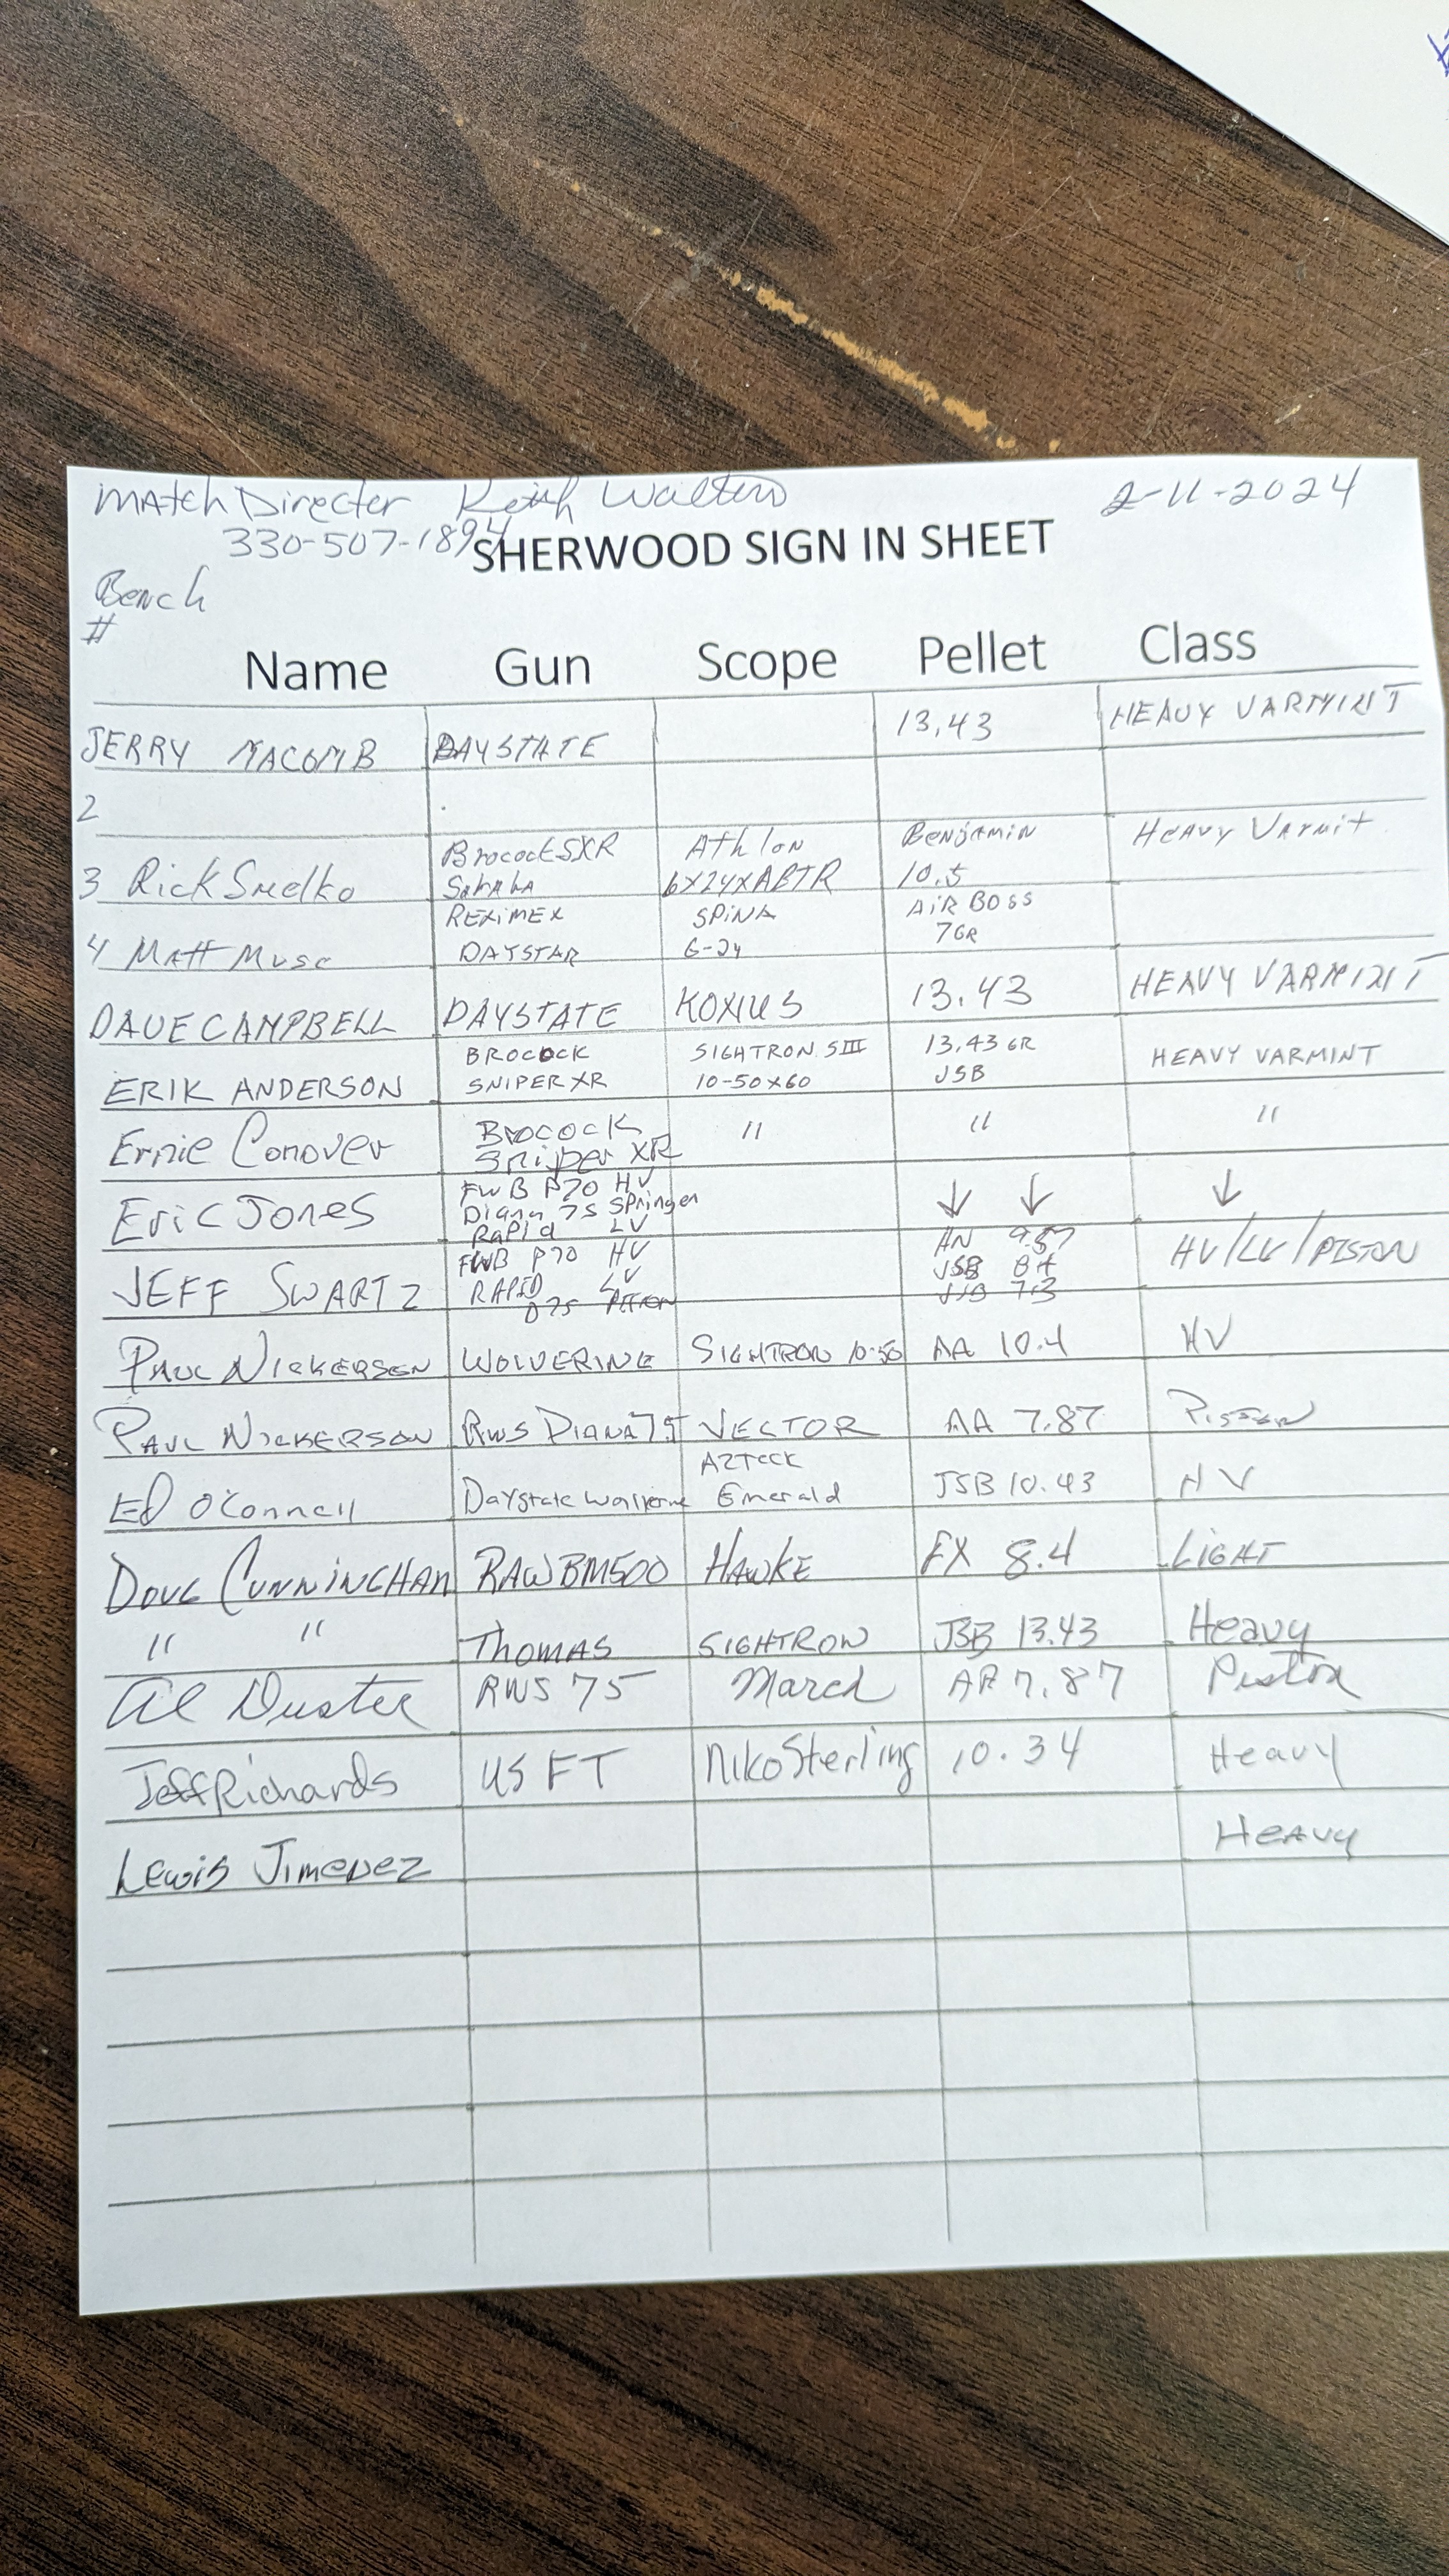 MAtch Directer Keith Walters 2-11-2024
330-507-1894
SHERWOOD SIGN IN SHEET
Bench
#
Name Gun Scope Pellet Class
JERRY MACOMB DAYSTATE 13.43 HEAVY VARMINT
2
3 Rick Smelko BrocockSXR Sahala Athlon 6X24XABTR Benjamin 10.5 Heavy Varmit
4 Matt Musc REXIMEX DAYSTAR SPINA 6-24 AIR BOSS 7GR
DAVE CAMPBELL DAYSTATE KONUS 13.43 HEAVY VARMINT
ERIK ANDERSON BROCOCK SNIPER XR SIGHTRON SIII 10-50X60 13.43 GR JSB HEAVY VARMINT
Ernie Conover Brocock Sniper XR " " "
Eric Jones FWB P70 HV Diana 75 Springer Rapid LV ↓ ↓ ↓
JEFF SWARTZ FWB P70 HV RAPID LV D75 PISTON HN 9.57 JSB 8.4 JSB 7.3 HV/LV/PISTON
PAUL NICKERSON WOLVERINE SIGHTRON 10-50 AA 10.4 HV
PAUL NICKERSON RWS DIANA 75 VECTOR AA 7.87 PISTON
ED O'Connell Daystate Azteck Emerald JSB 10.43 HV
DOUG CUNNINGHAM RAW BM500 HAWKE FX 8.4 LIGHT
" " THOMAS SIGHTRON JSB 13.43 Heavy
Al Duster RWS 75 March AA 7.87 Piston
Jeff Richards US FT Niko Sterling 10.34 Heavy
Lewis Jimenez Heavy